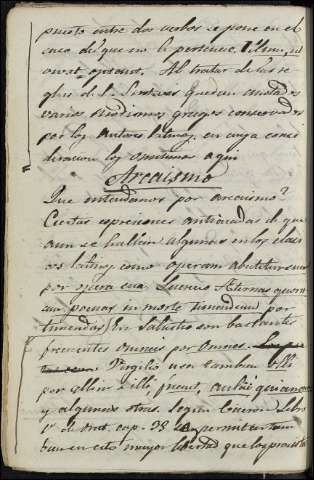 puesto entre dos verbos se pone en el
caso del que no le pertenece.
Al tratar de las re-
glas de la Sintaxis quedan anotados
varios modismos griegos conservados
por los autores latinos, en cuya consi-
deracion los omitimos aqui
Arcaismo
Que entendemos por arcaismo?
Ciertas espresiones anticuadas de que
aun se hallan algunas en los clasi-
cos latinos como operam abutuntur
por opera sua
poenas in morte timendum por
timendas) En Salustio son bastante
frecuentes omneis por omnes.
Virgilio usa tambien olli
por illi,
y algunos otros. Segun Ciceron Libro
cap. se permitian tam-
bien en esto mayor libertad que los prosistas